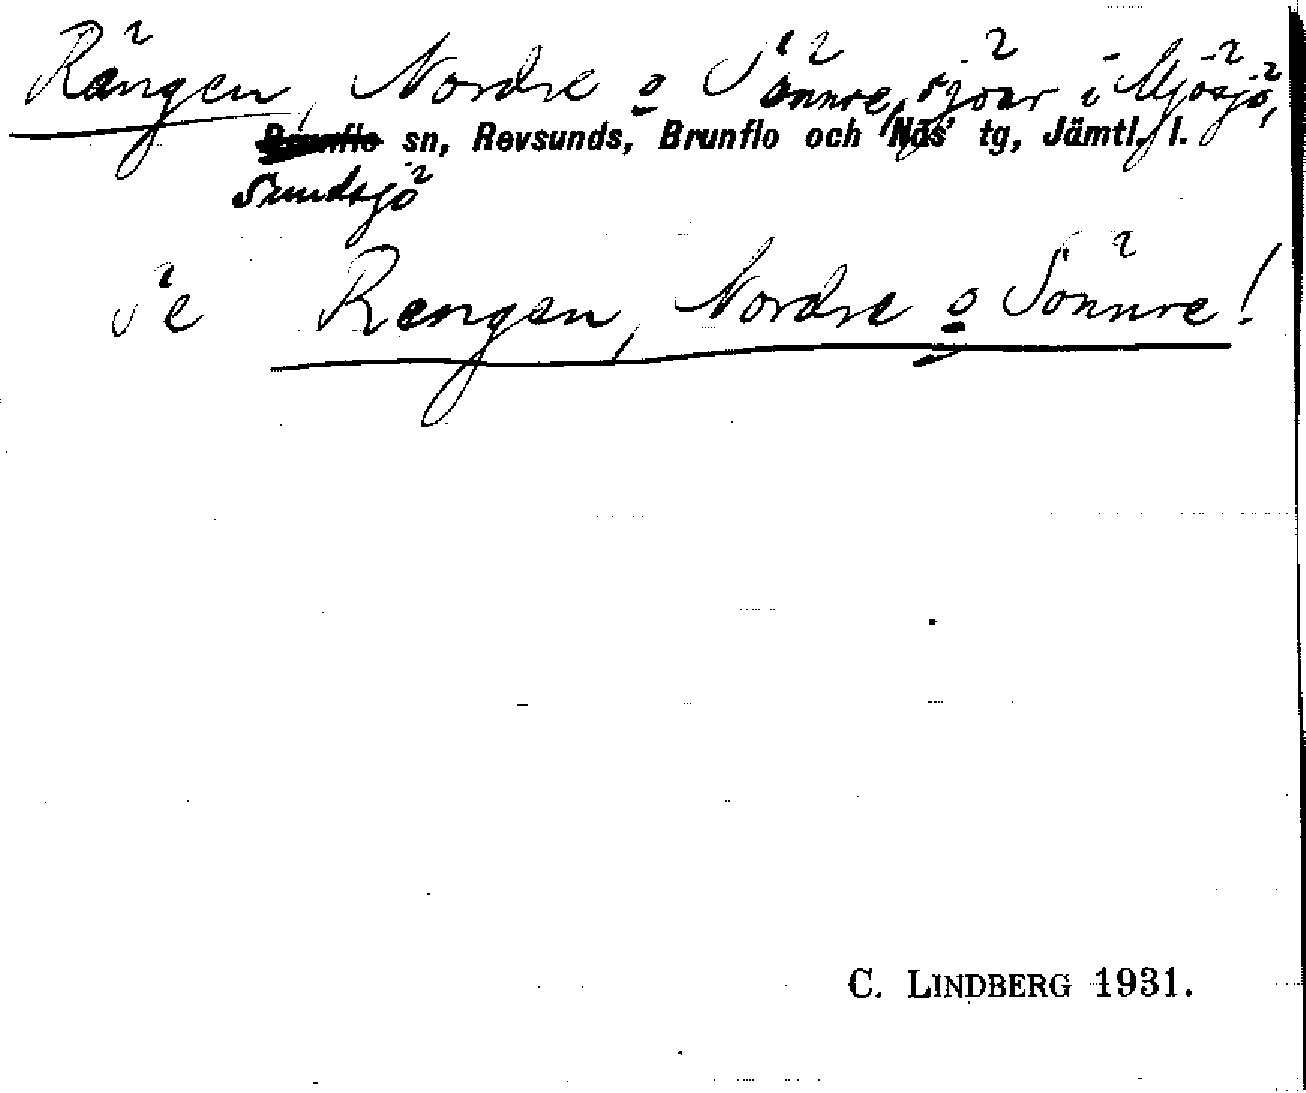 Rängen, Nordre o Sönnre, sjöar i Mjösjö,
Brunflo sn, Revsunds, Brunflo och Näs' tg, Jämtl. l.
Sundsjö
se Rengen, Nordre o Sönnre!
C. LINDBERG 1931.